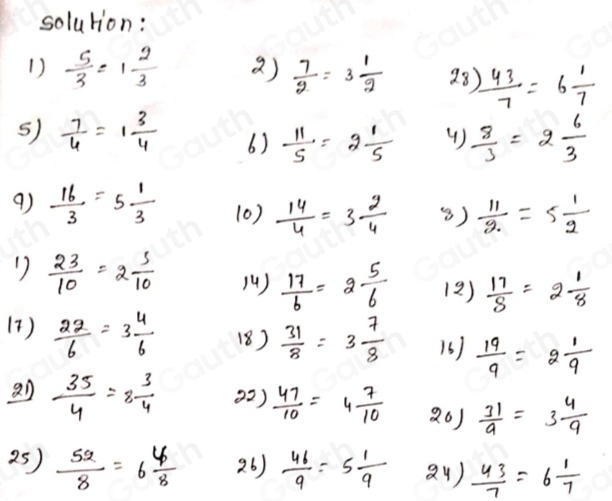 solution:
1) 5/3 = 1 2/3 2) 7/2 = 3 1/2 28) 43/7 = 6 1/7
5) 7/4 = 1 3/4 6) 11/5 = 2 1/5 4) 8/3 = 2 6/3
9) 16/3 = 5 1/3 10) 14/4 = 3 2/4 8) 11/2 = 5 1/2
1) 23/10 = 2 3/10 14) 17/6 = 2 5/6 12) 17/8 = 2 1/8
17) 22/6 = 3 4/6 18) 31/8 = 3 7/8 16) 19/9 = 2 1/9
21) 35/4 = 8 3/4 22) 47/10 = 4 7/10 20) 31/9 = 3 4/9
25) 52/8 = 6 4/8 26) 46/9 = 5 1/9 24) 43/7 = 6 1/7